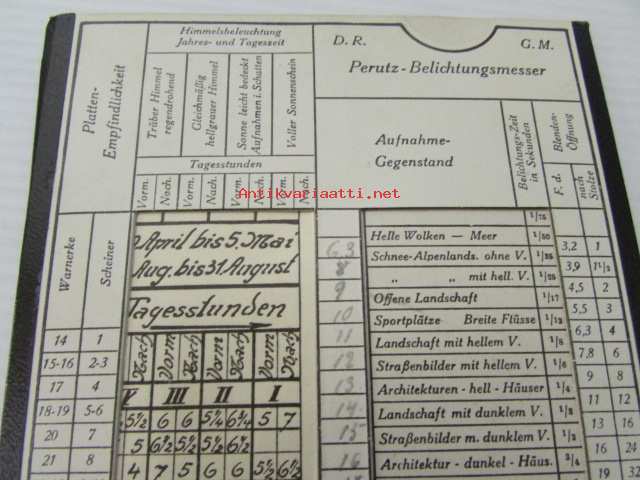 Himmelsbeleuchtung
Jahres- und Tageszeit
D. R. G. M.
Perutz-Belichtungsmesser
Platten-
Empfindlichkeit
Trüber Himmel
regendrohend
Gleichmäßig
hellgrauer Himmel
Sonne leicht bedeckt
Aufnahmen i. Schatten
Voller Sonnenschein
Aufnahme-
Gegenstand
Belichtungs-Zeit
in Sekunden
Blenden-
Öffnung
F. d.
nach
Stolze
Tagesstunden
Vorm. Nach. Vorm. Nach. Vorm. Nach. Vorm. Nach.
Antikvariaatti.net
Warnerke Scheiner
April bis 5. Mai
Aug. bis 31 August
Tagesstunden
Nach Vorm Nach Vorm Nach Vorm Nach
III II I
5½ 6 6 5¼ 6¾ 5 7
5 6½ 5½ 5½ 6½
4 7 5 6 6 5½ 6½
14 1
15-16 2-3
17 4
18-19 5-6
20 7
21 8
8
9
10
11
12
13
14
15
16
1/75
Helle Wolken — Meer 1/50
Schnee-Alpenlands. ohne V. 1/35
„ „ mit hell. V. 1/25
Offene Landschaft 1/17
Sportplätze Breite Flüsse 1/12
Landschaft mit hellem V. 1/8
Straßenbilder mit hellem V. 1/6
Architekturen - hell - Häuser 1/4
Landschaft mit dunklem V. 1/3
Straßenbilder m. dunklem V. 1/2
Architektur - dunkel - Häus.
3,2 1
3,9 1½
4,5 2
5,5 3
6,3 4
7,8 6
9 8
11 12
13 16
16 24
19 32